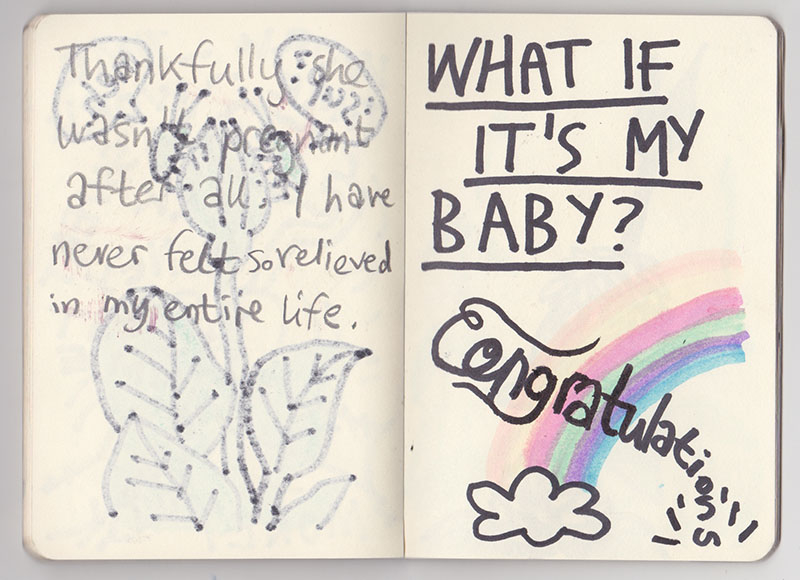 Thankfully she
wasn't pregnant
after all. I have
never felt so relieved
in my entire life.
WHAT IF
IT'S MY
BABY?
Congratulations